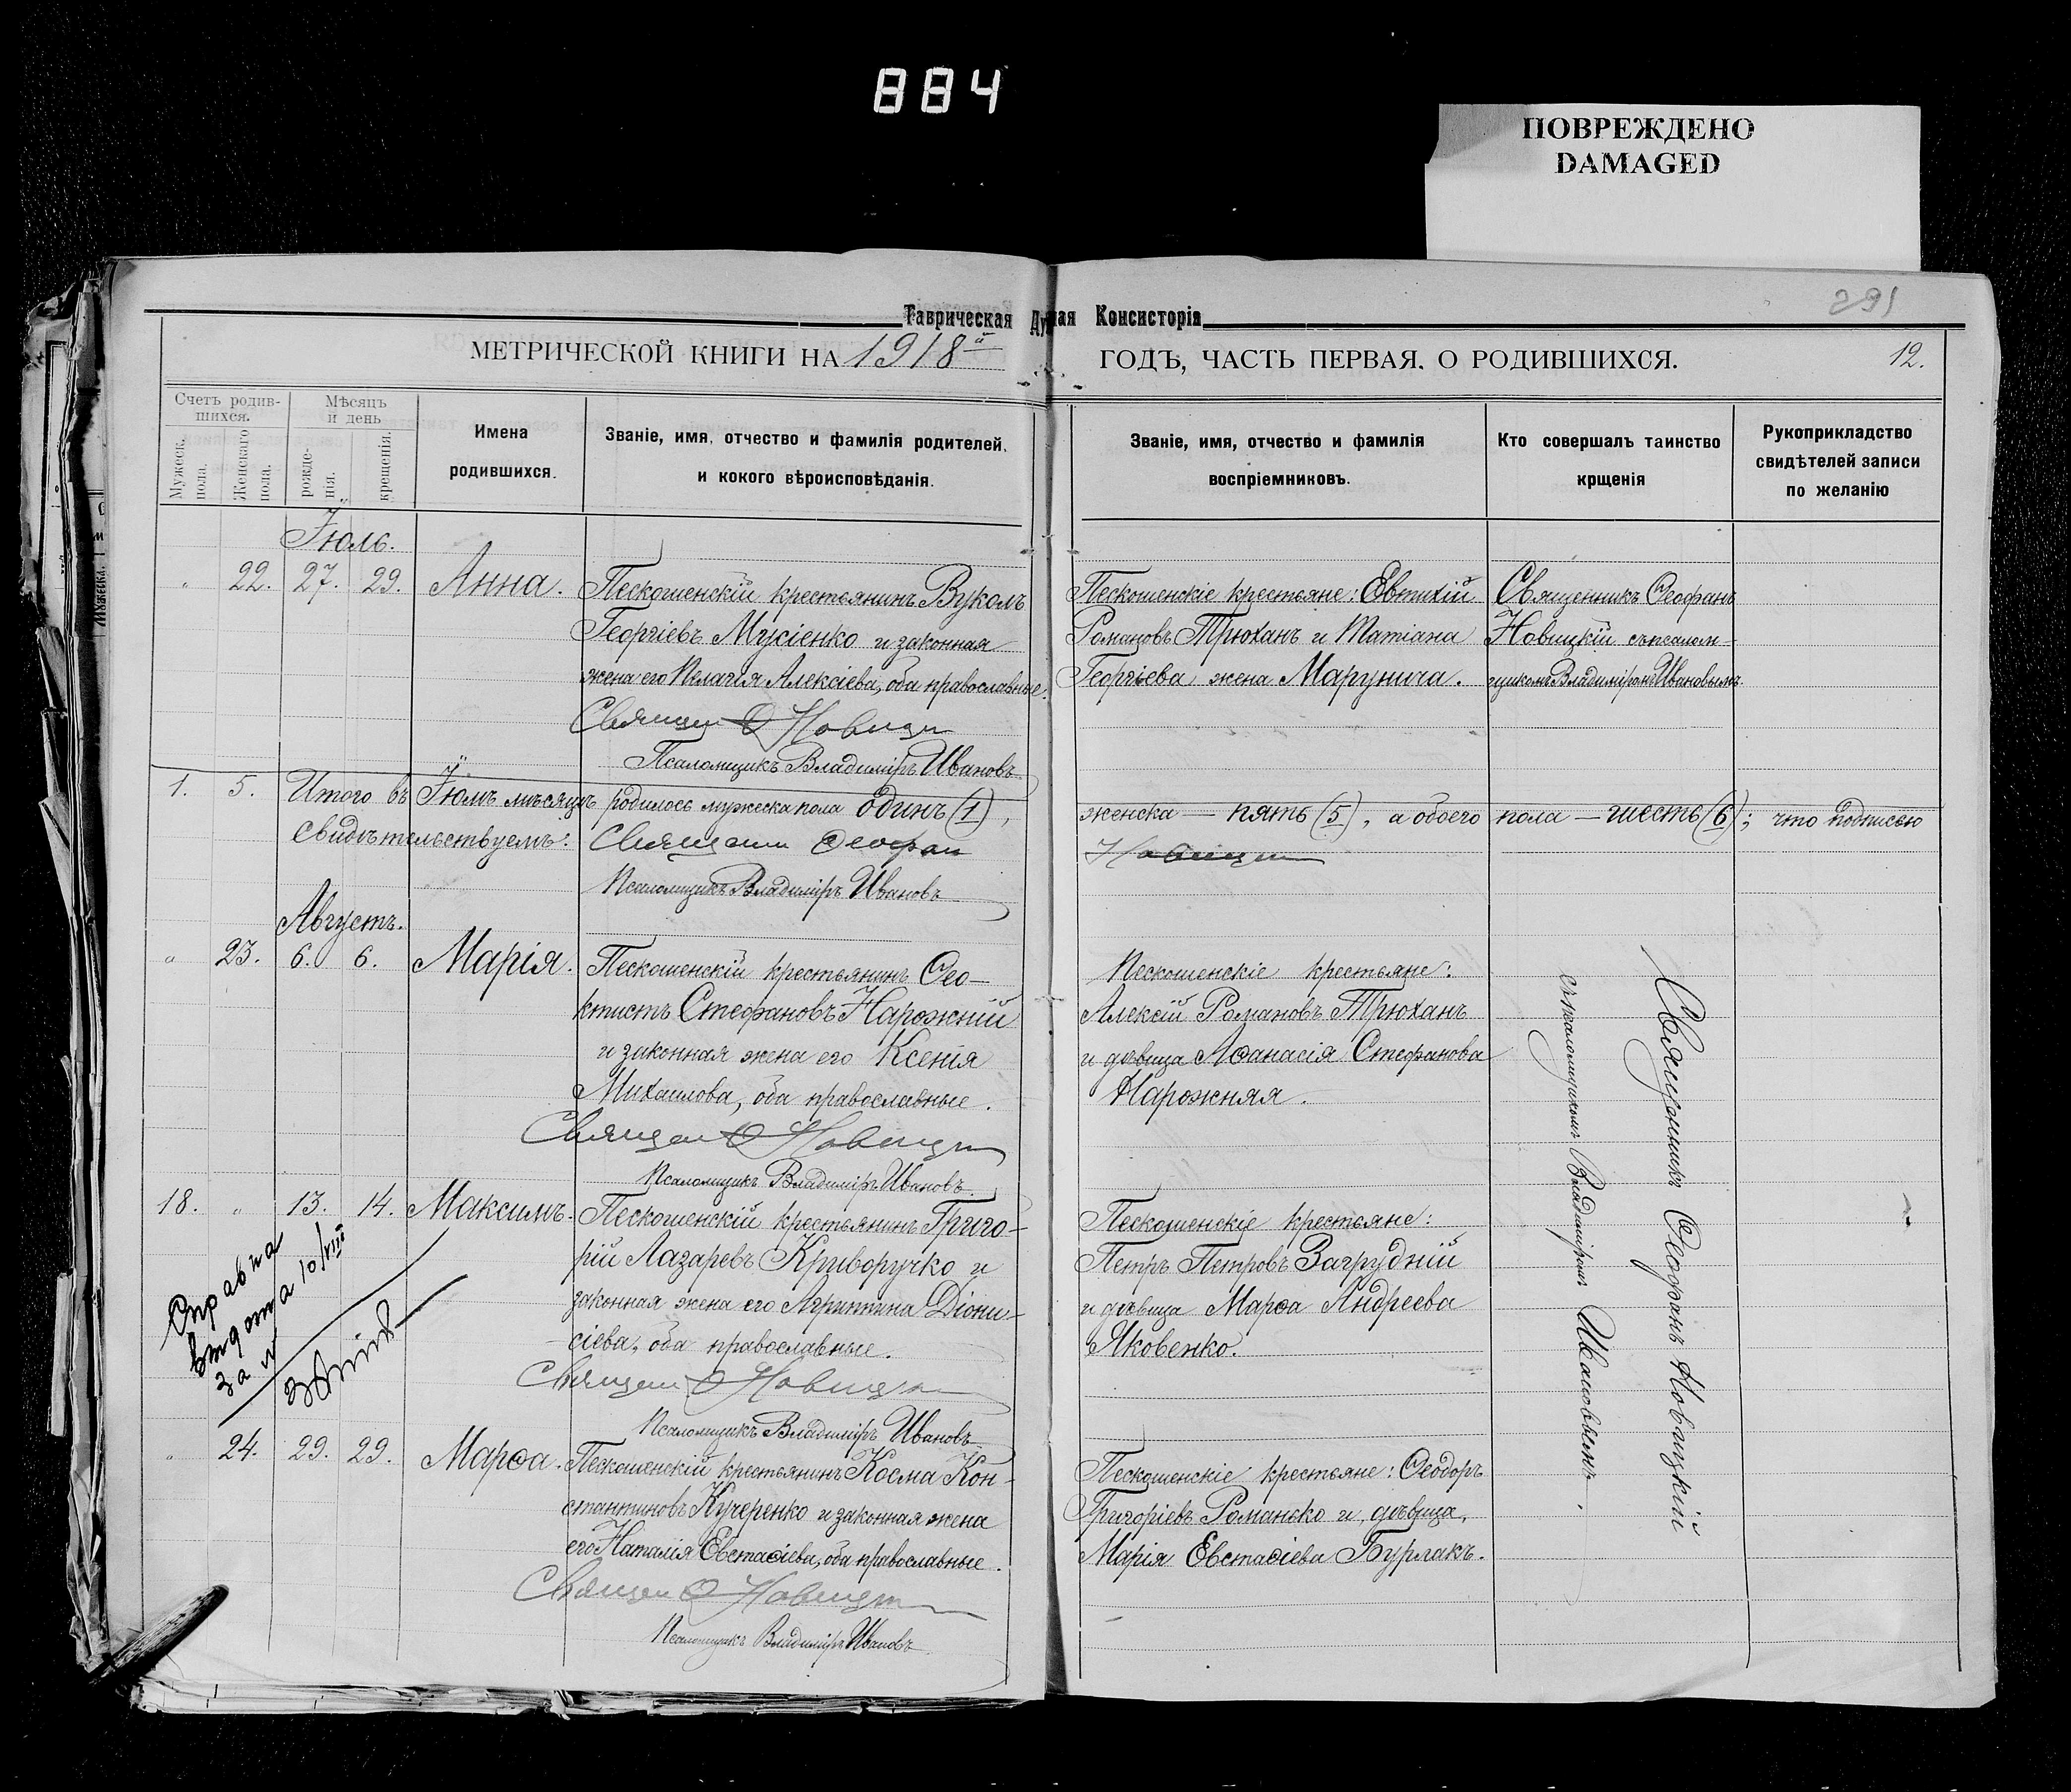 884
ПОВРЕЖДЕНО
DAMAGED
291
Таврическая Ду ная Консисторія
МЕТРИЧЕСКОЙ КНИГИ НА 1918й ГОДЪ, ЧАСТЬ ПЕРВАЯ. О РОДИВШИХСЯ. 12.
Счетъ родив-
шихся.
Мужеск. пола.
Женскаго пола.
Мѣсяцъ
и день
рожде-
нія.
крещенія.
Имена
родившихся.
Званіе, имя, отчество и фамилія родителей,
и кокого вѣроисповѣданія.
Званіе, имя, отчество и фамилія
воспріемниковъ.
Кто совершалъ таинство
крщенія
Рукоприкладство
свидѣтелей записи
по желанію
Іюль.
" 22. 27. 29. Анна.
Пескошенскій крестьянинъ Вуколъ
Георгіевъ Мусіенко и законная
жена его Пелагія Алексіева, оба православные.
Священ Ѳ Новицк
Псаломщикъ Владиміръ Ивановъ
Пескошенскіе крестьяне: Евтихій
Романовъ Трюханъ и Татіана
Георгіева жена Марунича.
Священникъ Ѳеофанъ
Новицкій съ псалом-
щикомъ Владиміромъ Ивановымъ.
1. 5. Итого въ Іюлѣ мѣсяцѣ родилось мужеска пола одинъ (1), женска — пять (5), а обоего пола — шесть (6); что подписью
свидѣтельствуемъ: Священник Ѳеофан Новицки
Псаломщикъ Владиміръ Ивановъ
Августъ.
" 23. 6. 6. Марія.
Пескошенскій крестьянинъ Ѳео-
ктистъ Стефановъ Нарожній
и законная жена его Ксенія
Михаилова, оба православные.
Священ Ѳ Новицки
Псаломщикъ Владиміръ Ивановъ.
Пескошенскіе крестьяне:
Алексій Романовъ Трюханъ
и дѣвица Аѳанасія Стефанова
Нарожняя.
Священникъ Ѳеофанъ Новицкій
съ псаломщикомъ Владиміромъ Ивановымъ.
18. " 13. 14. Максимъ.
Пескошенскій крестьянинъ Григо-
рій Лазаревъ Криворучко и
законная жена его Агриппина Діони-
сіева, оба православные.
Священ Ѳ Новицки
Псаломщикъ Владиміръ Ивановъ
Пескошенскіе крестьяне:
Петръ Петровъ Загрудній
и дѣвица Марѳа Андреева
Яковенко.
Справка
выдата 10/VIII
за №
" 24. 29. 29. Марѳа.
Пескошенскій крестьянинъ Косма Кон-
стантиновъ Кучеренко и законная жена
его Наталія Евстаѳіева, оба православные.
Священ Ѳ Новицки
Псаломщикъ Владиміръ Ивановъ
Пескошенскіе крестьяне: Ѳеодоръ
Григоріевъ Романько и дѣвица,
Марія Евстаѳіева Бурлакъ.